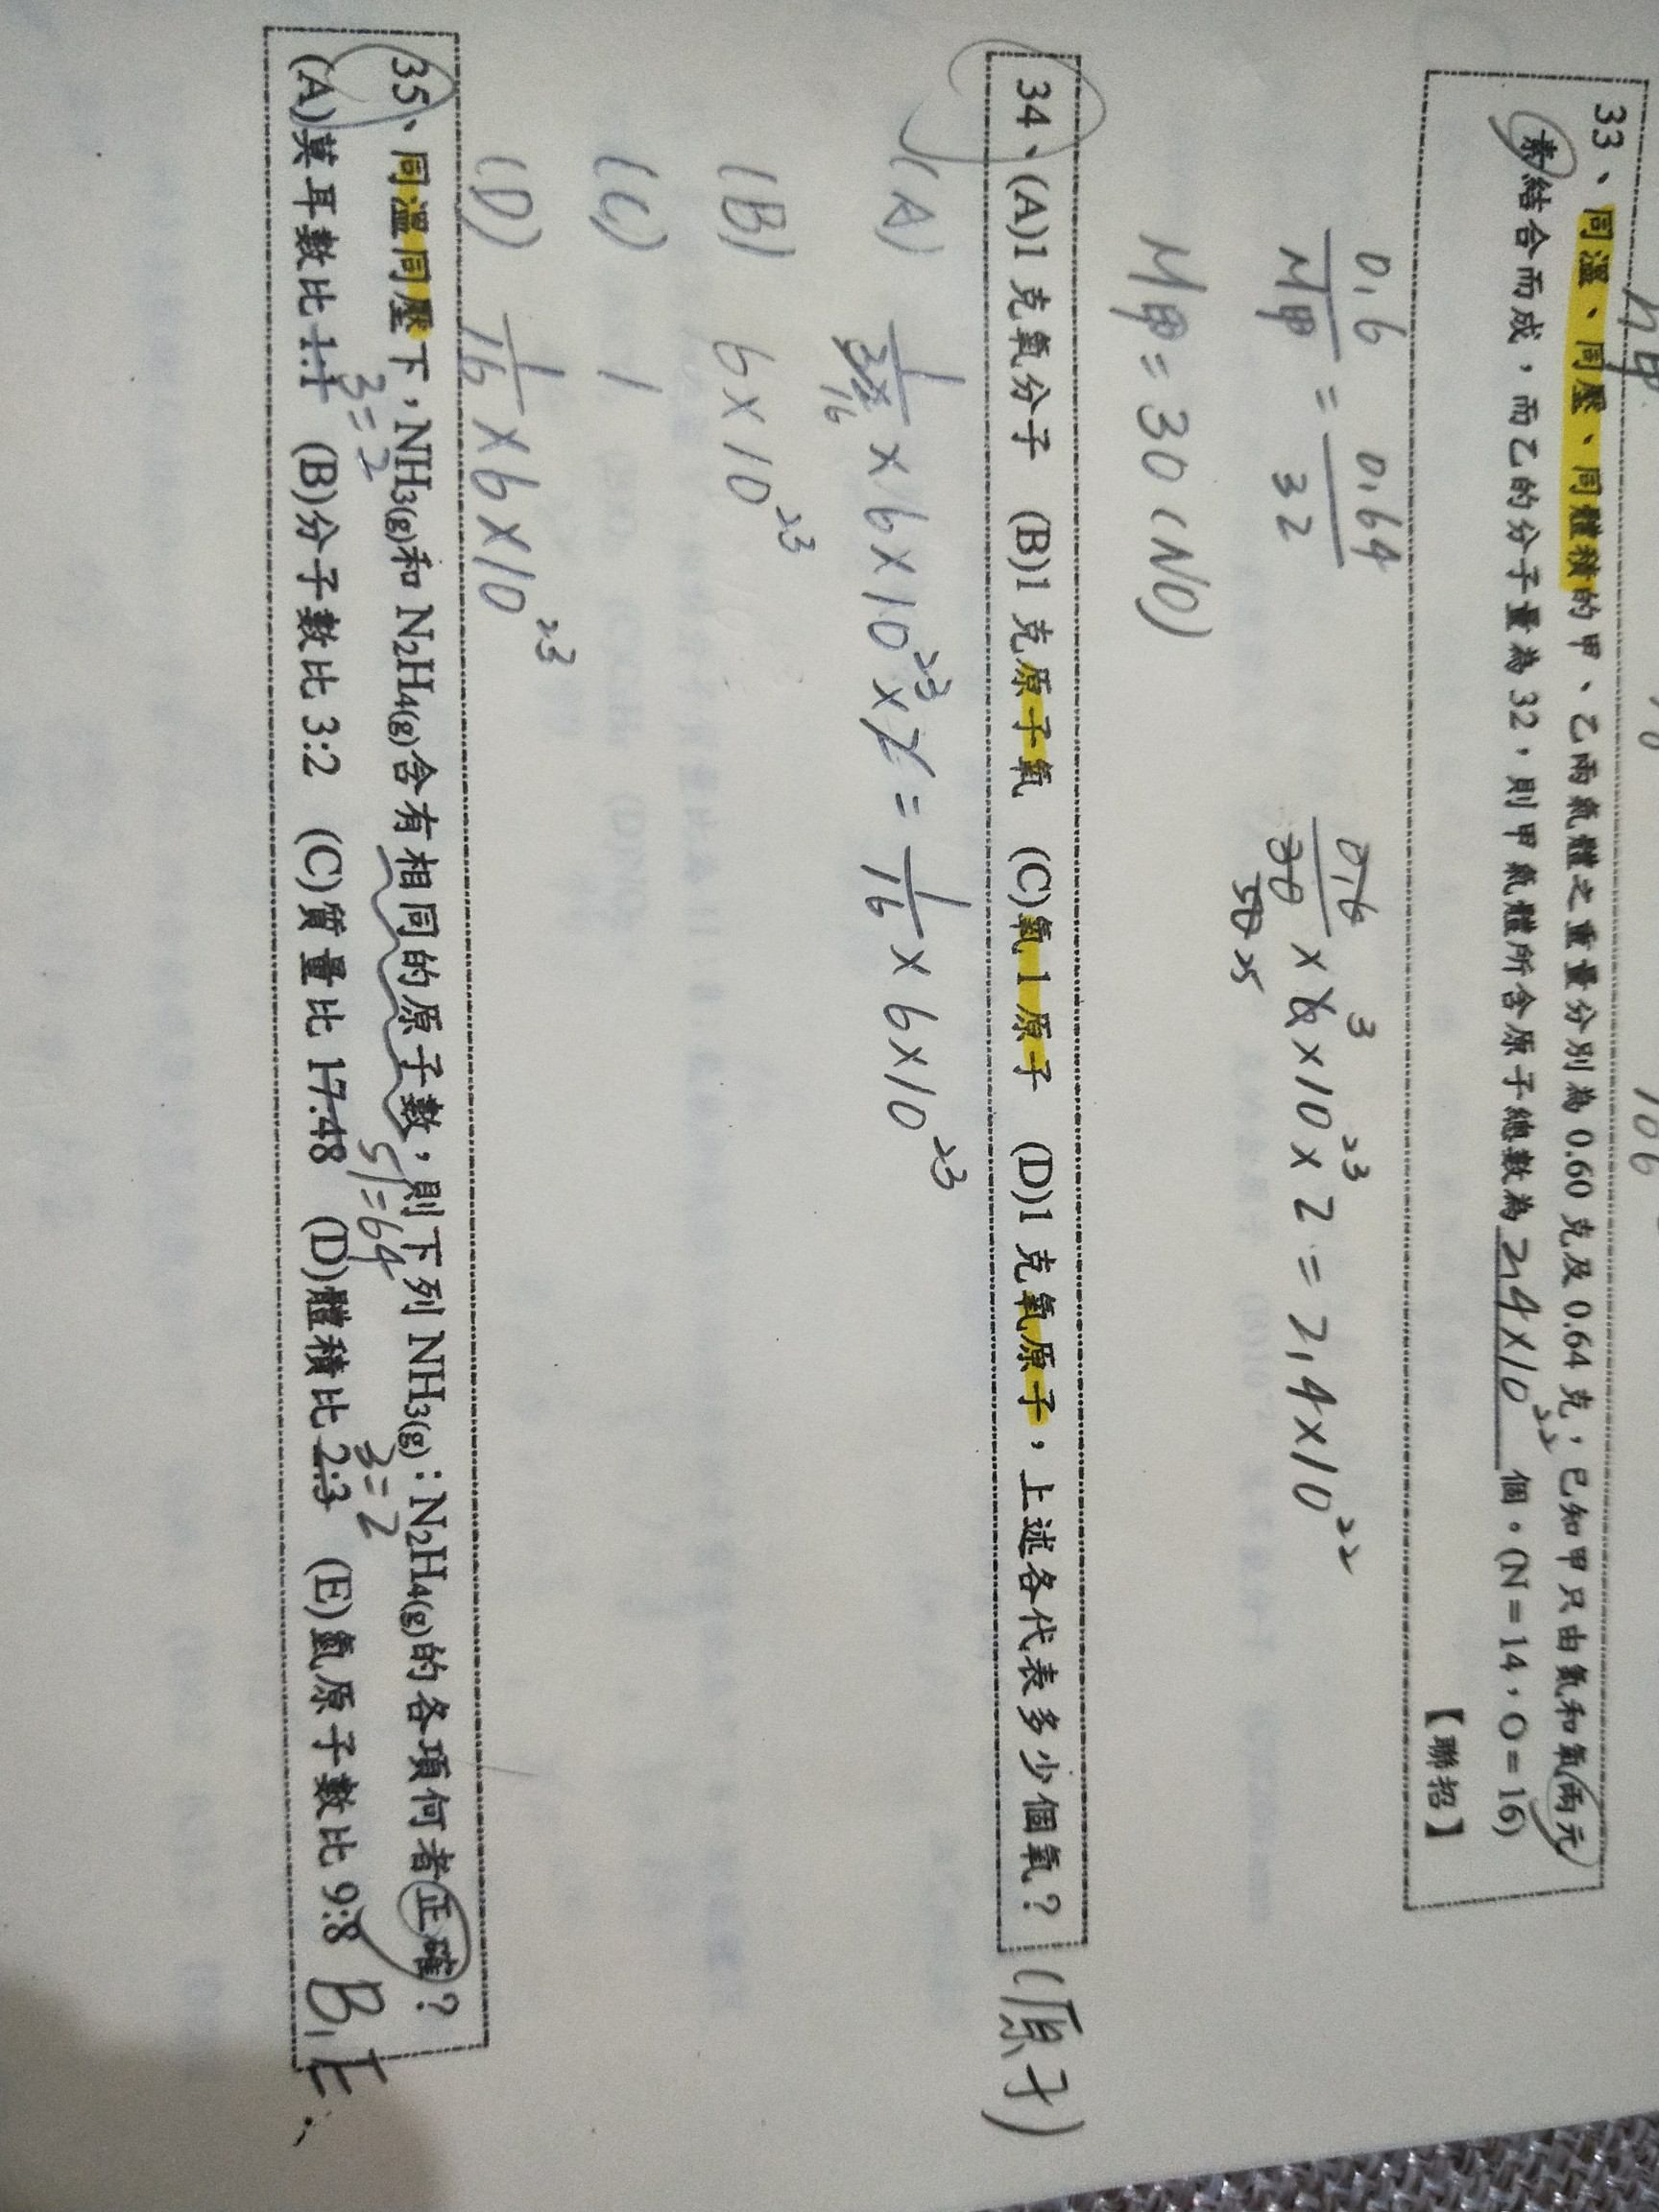 33、同溫、同壓、同體積的甲、乙兩氣體之重量分別為 0.60 克及 0.64 克，已知甲只由氮和氧兩元
素結合而成，而乙的分子量為 32，則甲氣體所含原子總數為 2.4×10²² 個。(N＝14，O＝16)
【聯招】
0.6/M甲 = 0.64/32
0.6/30 × 6 × 10²³ × 2 = 2.4×10²²
3
50 25
M甲 = 30 (NO)
34、(A)1 克氧分子 (B)1 克原子氧 (C)氧 1 原子 (D)1 克氧原子，上述各代表多少個氧？(原子)
(A) 1/(2×16) × 6×10²³ × 2 = 1/16 × 6×10²³
(B) 6×10²³
(C) 1
(D) 1/16 × 6×10²³
35、同溫同壓下，NH₃(g)和 N₂H₄(g)含有相同的原子數，則下列 NH₃(g)：N₂H₄(g)的各項何者正確？
3=2 51=64 3=2
(A)莫耳數比 1:1 (B)分子數比 3:2 (C)質量比 17:48 (D)體積比 2:3 (E)氫原子數比 9:8 B,E